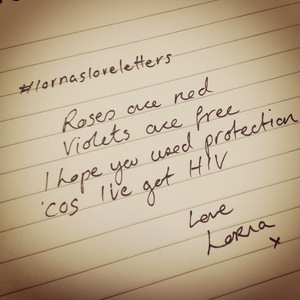 #lornasloveletters
Roses are red
Violets are free
I hope you used protection
'cos I've got HIV
Love
Lorna
x